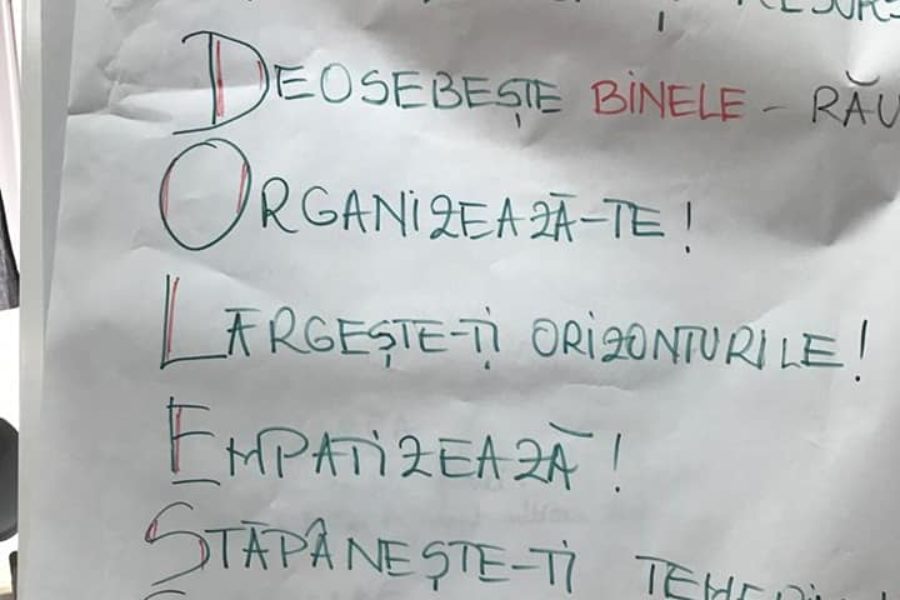 DEOSEBEȘTE BINELE - RĂU
ORGANIZEAZĂ-TE!
LĂRGEȘTE-ȚI ORIZONTURILE!
EMPATIZEAZĂ!
STĂPÂNEȘTE-ȚI